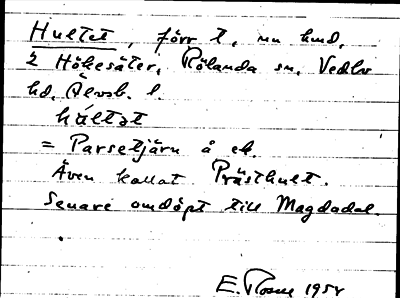 Hultet, förr t, nu hmd,
i Hökesäter, Rölanda sn, Vedbo
hd, Älvsb. l.
hùltət
= Parsetjärn å ek.
Även kallat Prästhult.
Senare omdöpt till Magdadal.
E. Rosell 195